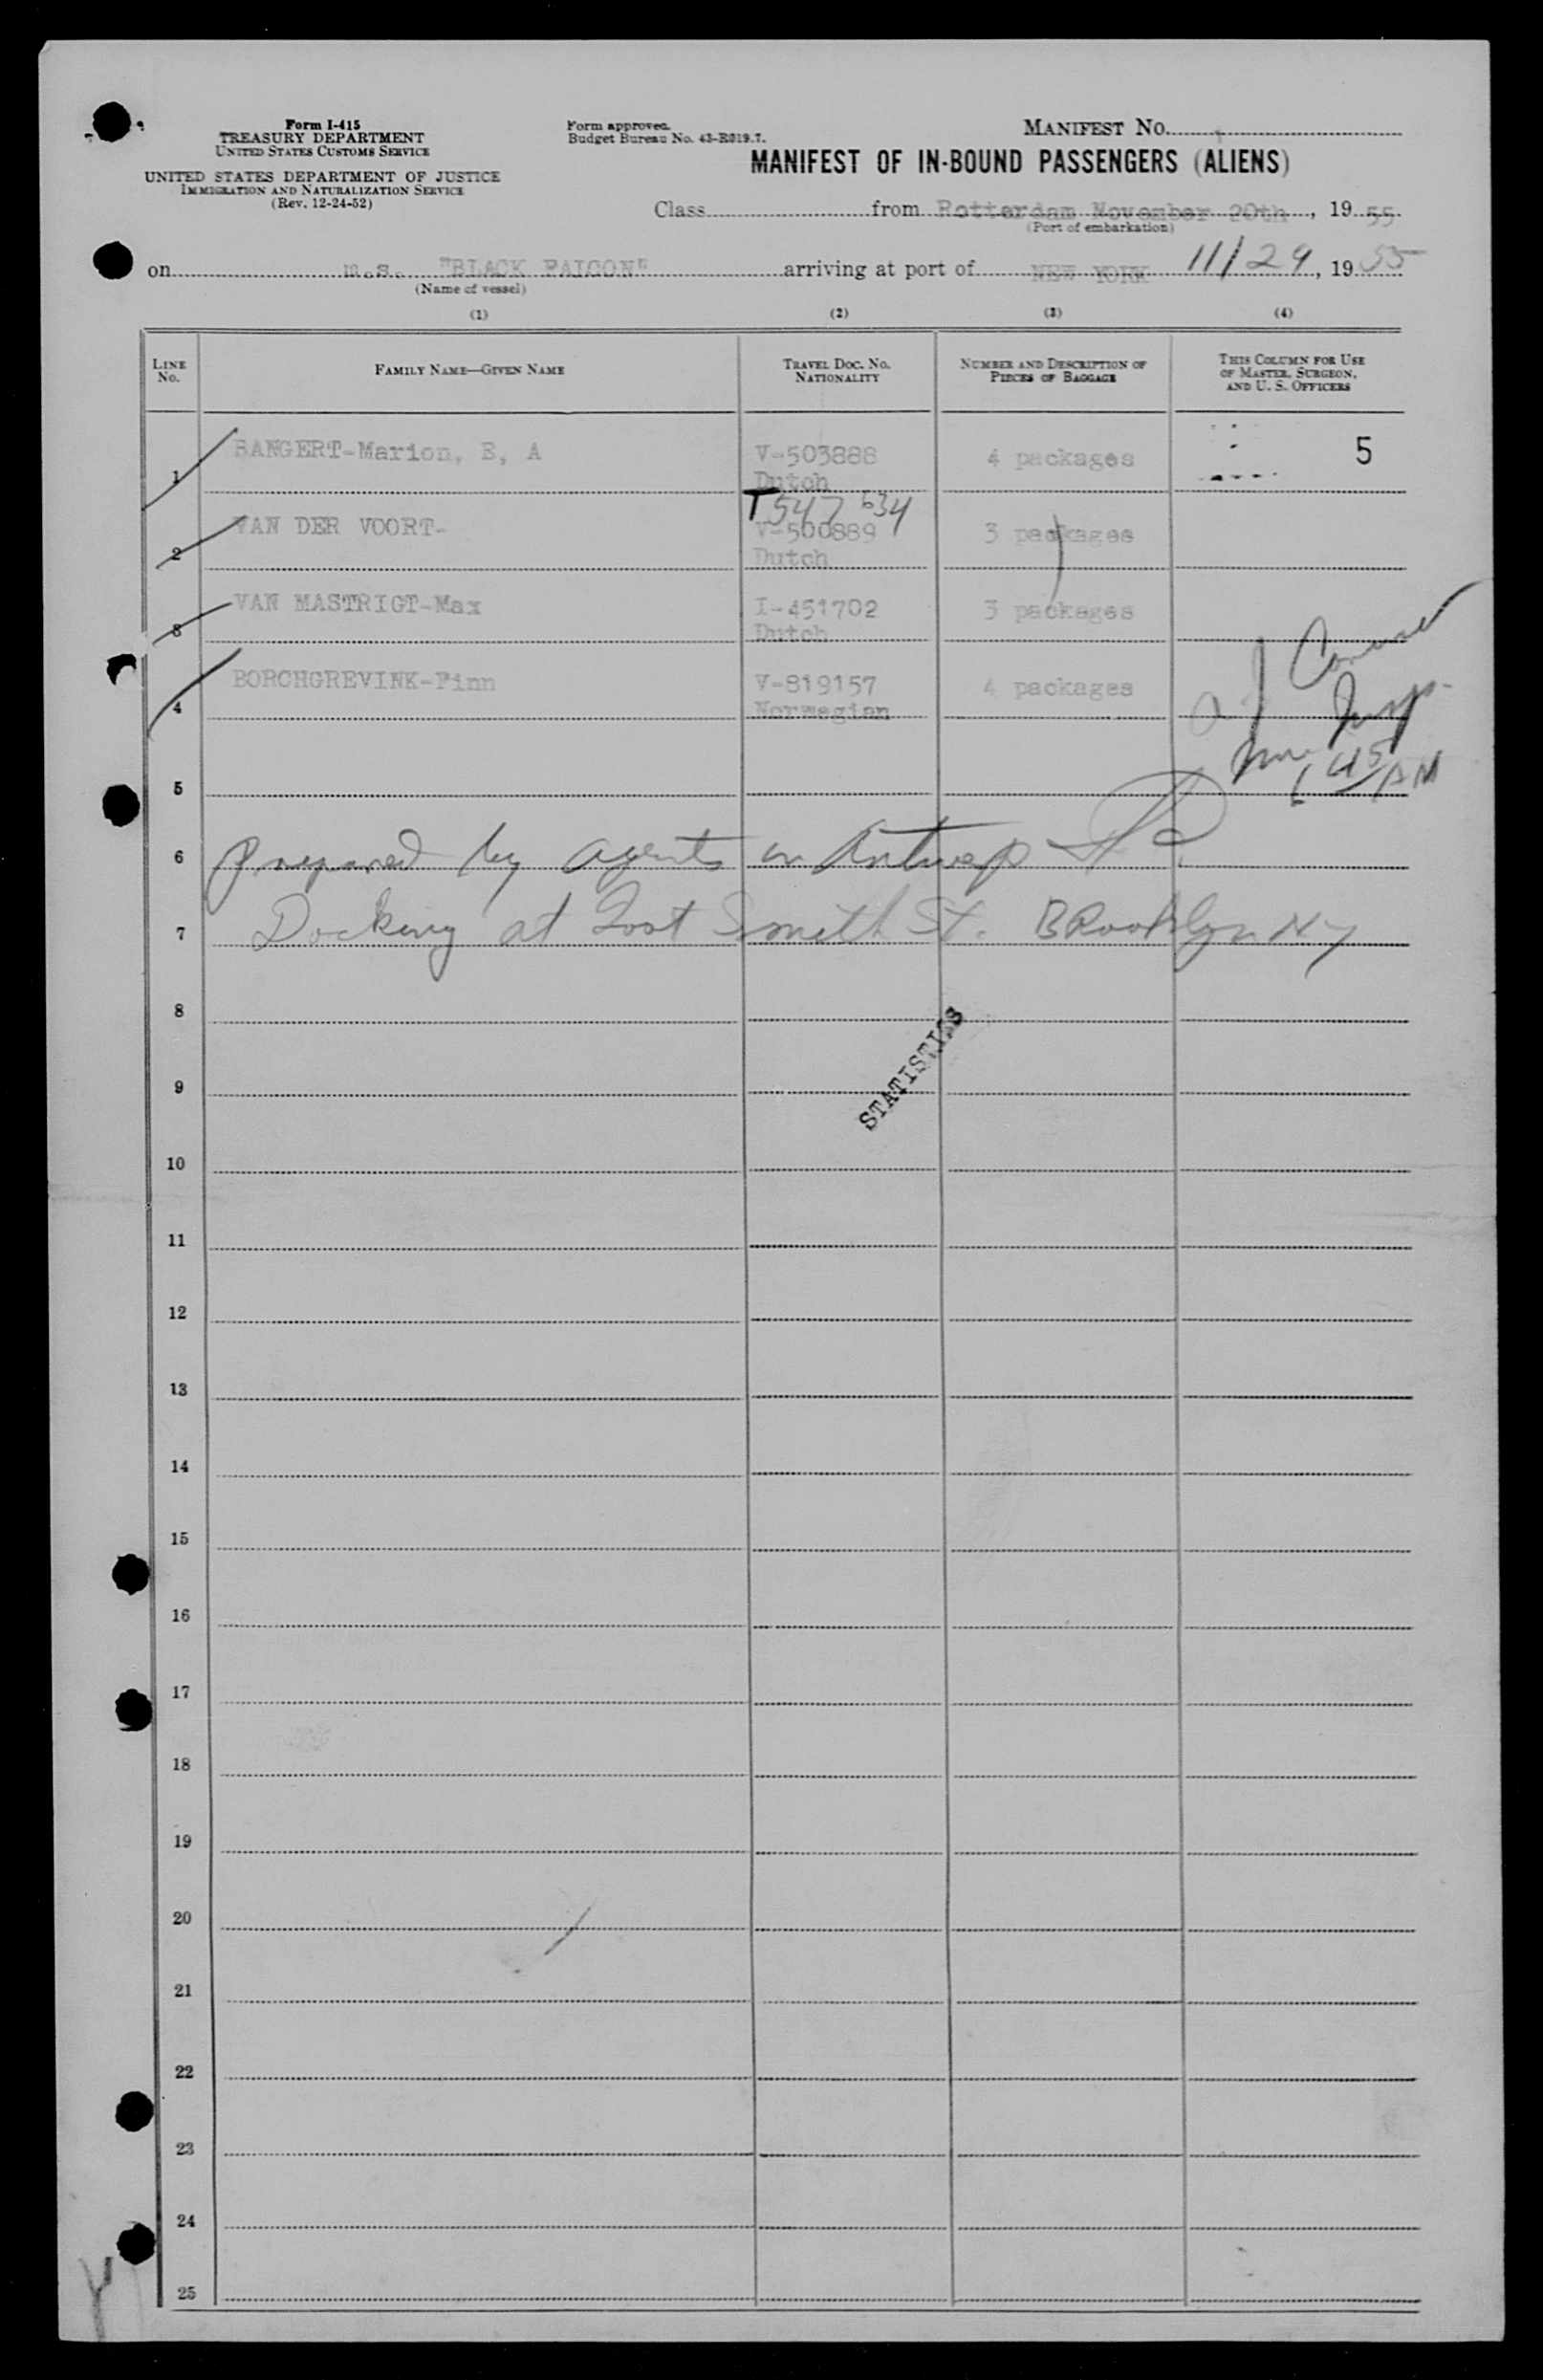 Form I-415
TREASURY DEPARTMENT
UNITED STATES CUSTOMS SERVICE
UNITED STATES DEPARTMENT OF JUSTICE
IMMIGRATION AND NATURALIZATION SERVICE
(Rev. 12-24-52)
Form approved.
Budget Bureau No. 43-R019.7.
MANIFEST No.
MANIFEST OF IN-BOUND PASSENGERS (ALIENS)
Class from Rotterdam November 20th, 19 55
(Port of embarkation)
on m.s. "BLACK FALCON" arriving at port of NEW YORK 11/29, 19 55
(Name of vessel)
(1) (2) (3) (4)
LINE No. FAMILY NAME—GIVEN NAME TRAVEL DOC. No. NATIONALITY NUMBER AND DESCRIPTION OF PIECES OF BAGGAGE THIS COLUMN FOR USE OF MASTER, SURGEON, AND U. S. OFFICERS
1 BANGERT-Marion, E, A V-503888 4 packages 5
Dutch
T547634
2 VAN DER VOORT- V-500889 3 packages
Dutch
3 VAN MASTRIGT-Max I-451702 3 packages
Dutch
4 BORCHGREVINK-Finn V-819157 4 packages
Norwegian
Insp.
45 AM
5
6 Prepared by agents in Antwerp
7 Docking at Foot Smith St. Brooklyn NY
8
STATISTICS
9
10
11
12
13
14
15
16
17
18
19
20
21
22
23
24
25